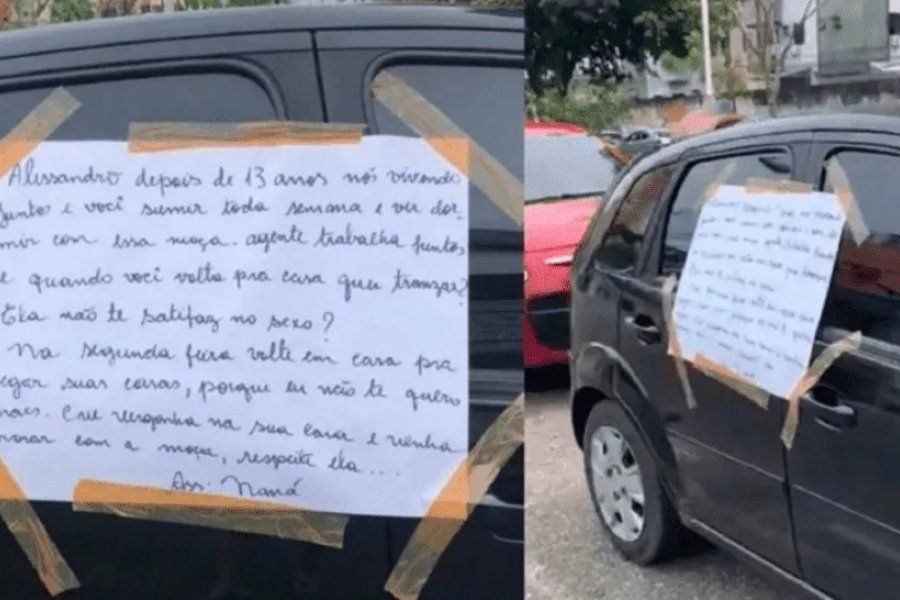 Alissandro depois de 13 anos nós vivendo
juntos e você sumir toda semana e vir dor
mir com essa moça. agente trabalha juntos,
e quando você volta pra casa quer tranzar?
Ela não te satifaz no sexo?
Na segunda feira volte em casa pra
pegar suas coisas, porque eu não te quero
mais. Crie vergonha na sua cara e venha
morar com a moça, respeite ela....
Ass: Naná